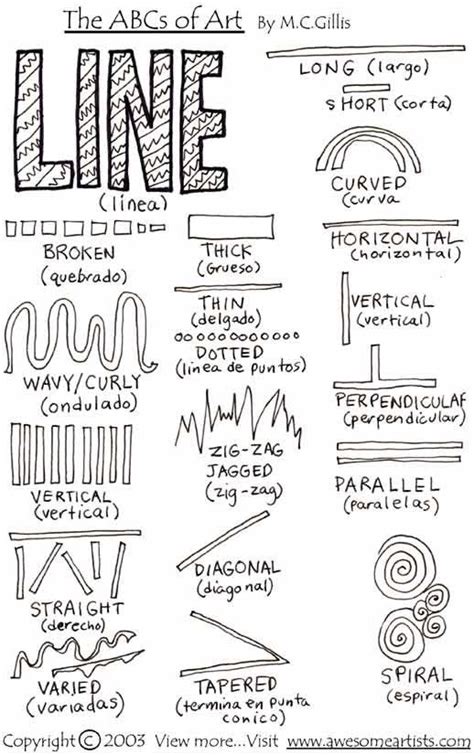 The ABCs of Art By M.C.Gillis
LINE
(línea)
BROKEN
(quebrado)
WAVY/CURLY
(ondulado)
VERTICAL
(vertical)
STRAIGHT
(derecho)
VARIED
(variadas)
THICK
(Grueso)
THIN
(delgado)
DOTTED
(línea de puntos)
ZIG-ZAG
JAGGED
(zig-zag)
DIAGONAL
(diagonal)
TAPERED
(termina en punta
conico)
LONG (largo)
SHORT (corta)
CURVED
(curva
HORIZONTAL
(horizontal)
VERTICAL
(vertical)
PERPENDICULAR
(perpendicular)
PARALLEL
(paralelas)
SPIRAL
(espiral)
Copyright © 2003 View more...Visit www.awesomeartists.com